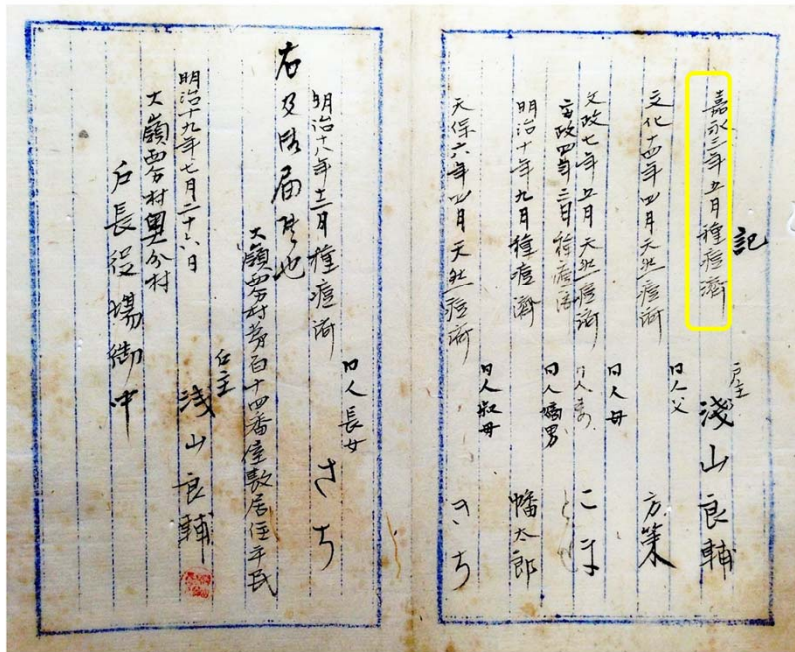 記
嘉永三年五月種痘済
戸主
淺山良輔
文化十四年四月天然痘済
同人父
方策
文政七年五月天然痘済
同人母
こま
安政四年三月種痘済
同人妻
明治十年九月種痘済
同人嫡男
幡太郎
天保六年四月天然痘済
同人叔母
きち
明治十八年十二月種痘済
同人長女
さち
右及御届候也
大嶺西分村第百十四番屋敷居住平民
戸主
淺山良輔
明治十九年七月二十六日
大嶺西分村奥分村
戸長役場御中